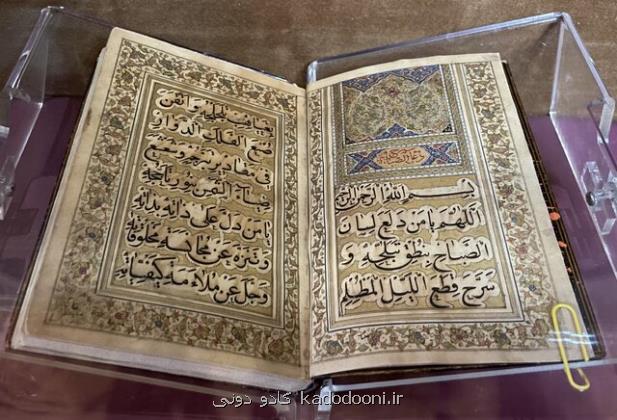 بسم الله الرحمن الرحیم
اللهم یا من دلع لسان
الصباح بنطق تبلجه و
سرح قطع اللیل المظلم
بغیاهب تلجلجه و اتقن
صنع الفلک الدوار
فی مقادیر تبرجه و شعشع
ضیاء الشمس بنور تاججه
یا من دل علی ذاته بذاته
و تنزه عن مجانسة مخلوقاته
و جل عن ملاءمة کیفیاته
کادو دونی kadodooni.ir